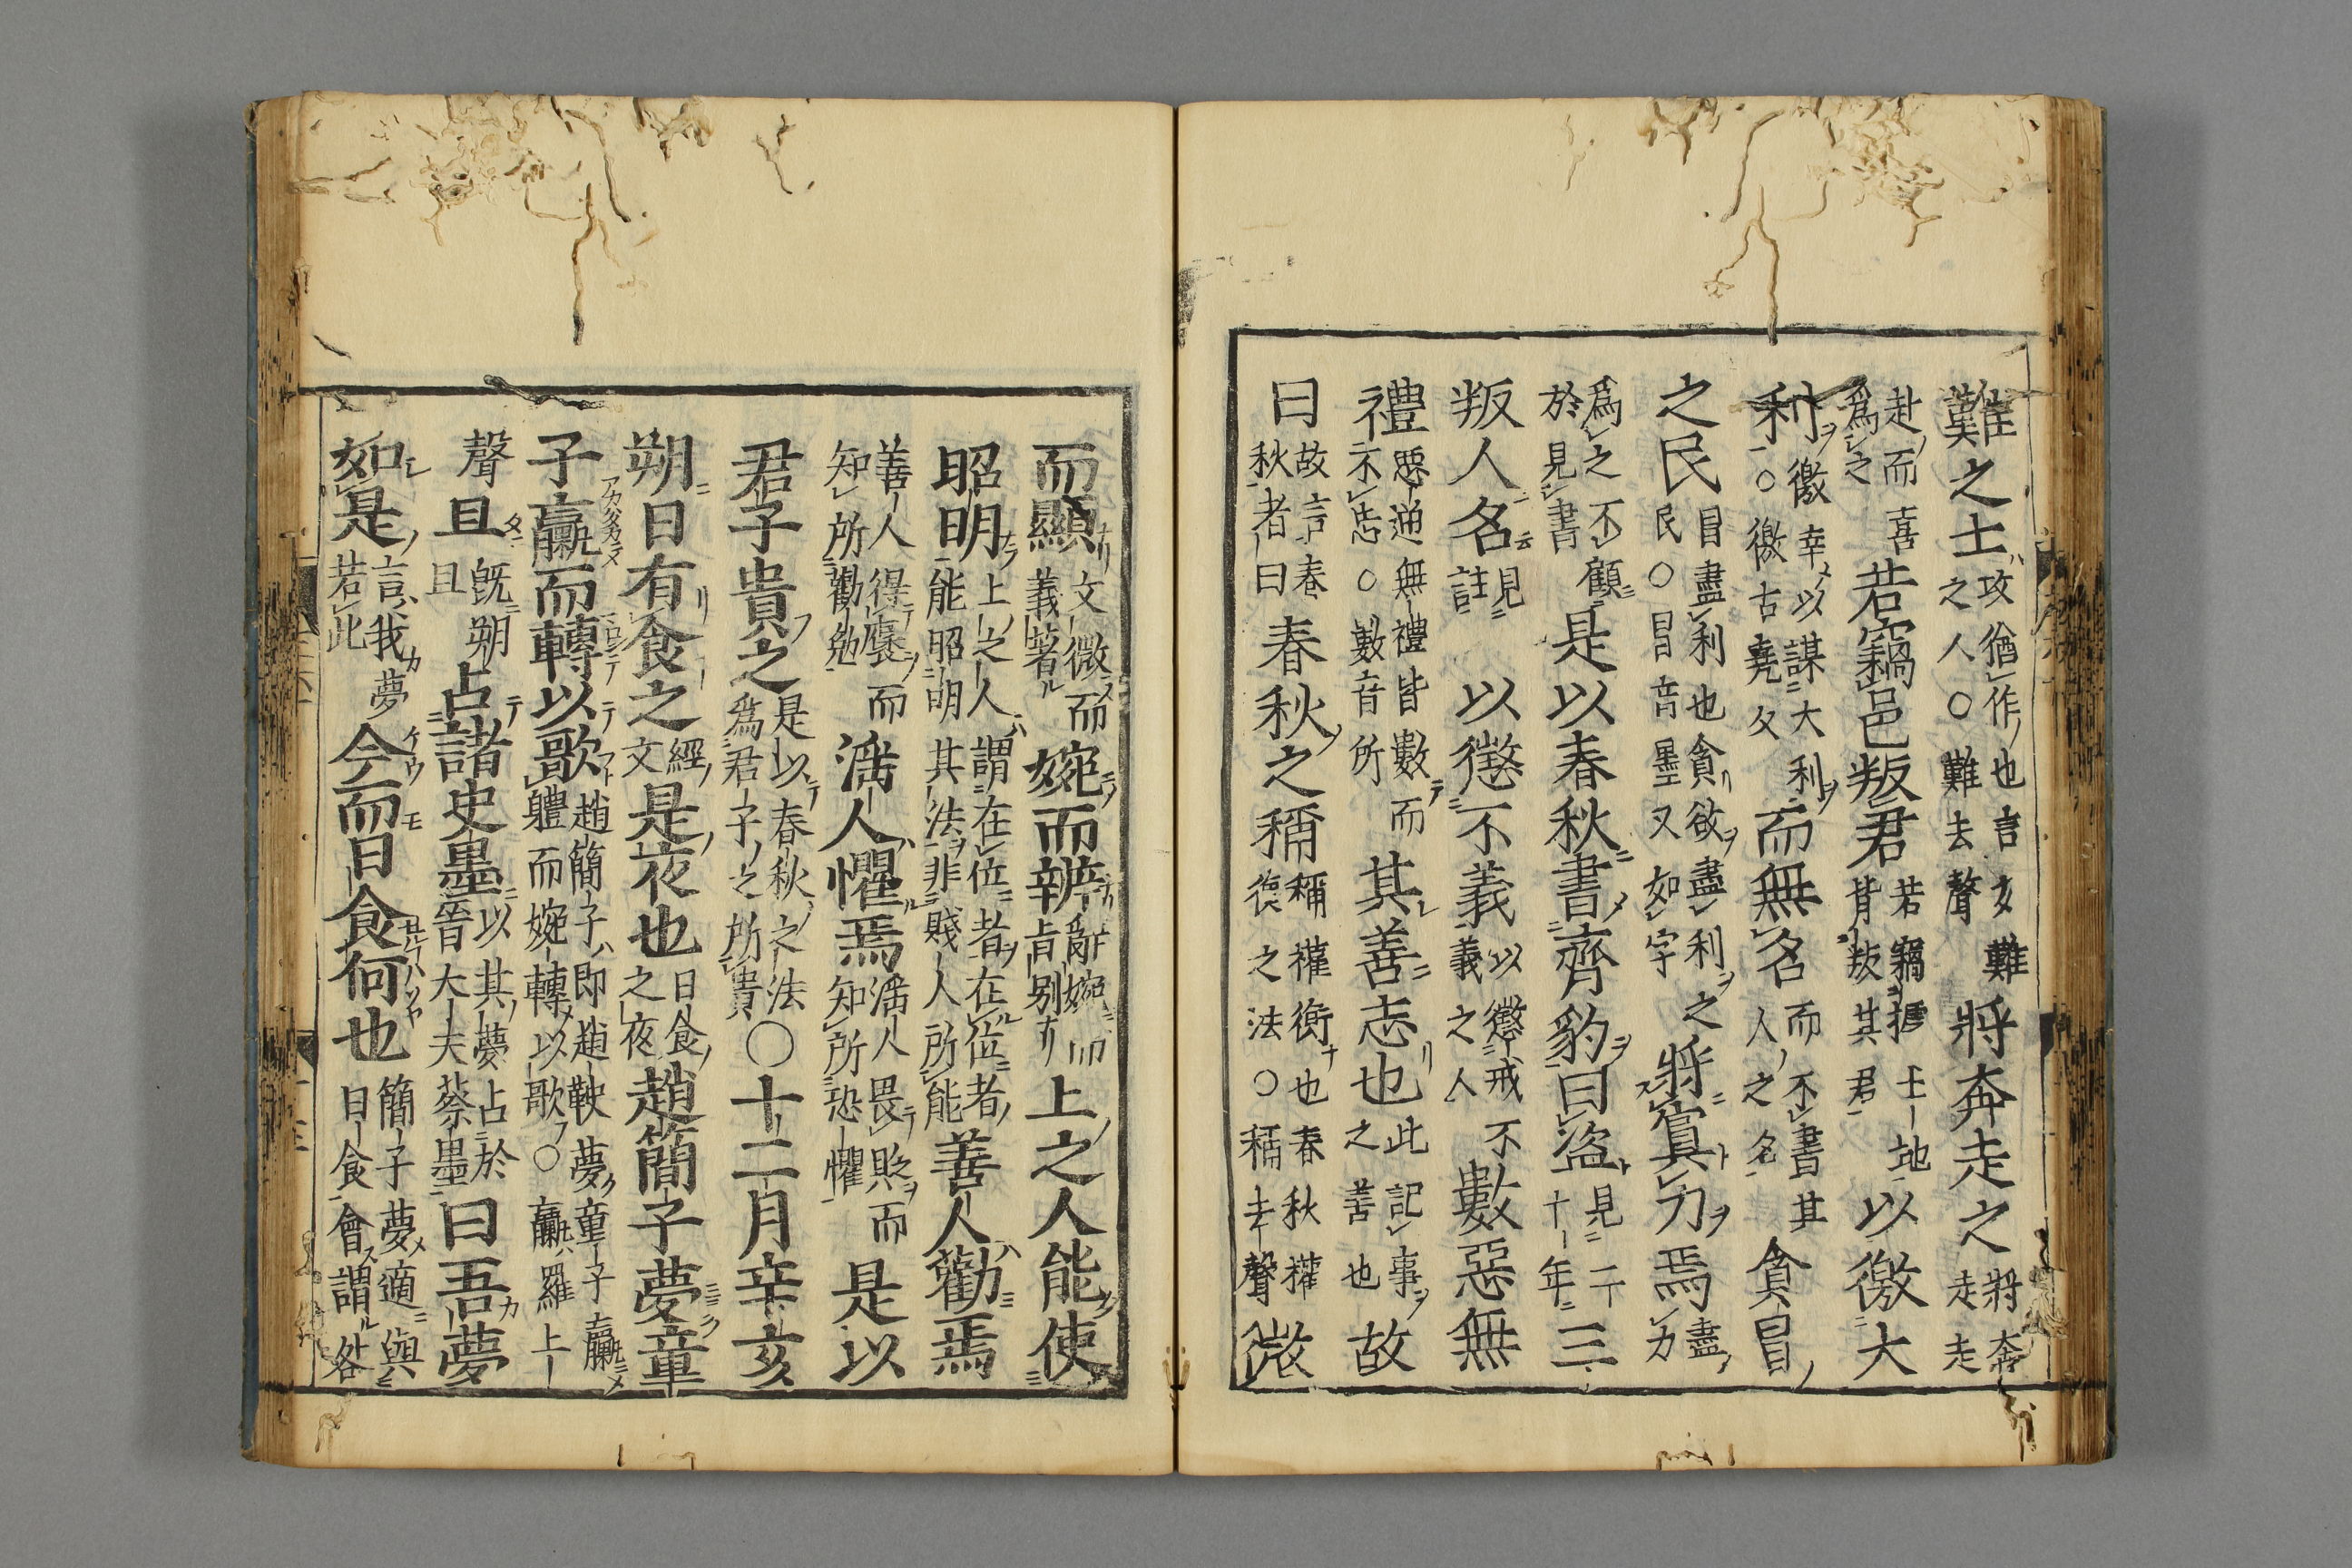 難之士攻猶作也言攻難之人○難去聲將奔走之將奔走走
赴而喜為之若竊邑叛君若竊據土地背叛其君以徼大
利徼幸以謀大利○徼古堯夂而無名而不書其人之名貪冒
之民冒盡利也貪欲盡利之民○冒音墨又如字將寘力焉盡力
為之不顧於見書是以春秋書齊豹曰盜見二十年三
叛人名見註以懲不義以懲戒不義之人數惡無
禮惡逆無禮皆數而不忘○數音所其善志也此記事之善也故
曰故言春秋者曰春秋之稱稱權衡也春秋權衡之法○稱去聲微
而顯文微而義著婉而辨辭婉而旨別上之人能使
昭明上之人謂在位者在位者能昭明其法非賤人所能善人勸焉
善人得褒而知所勸勉淫人懼焉淫人畏貶而知所恐懼是以
君子貴之是以春秋之法為君子之所貴○十二月辛亥
朔日有食之經文是夜也日食之夜趙簡子夢童
子臝而轉以歌趙簡子即趙鞅夢童子臝體而婉轉以歌○臝羅上
聲且既朔且占諸史墨以其夢占於晉大夫蔡墨曰吾夢
如是言我夢若此今而日食何也簡子夢適與日食會謂咎